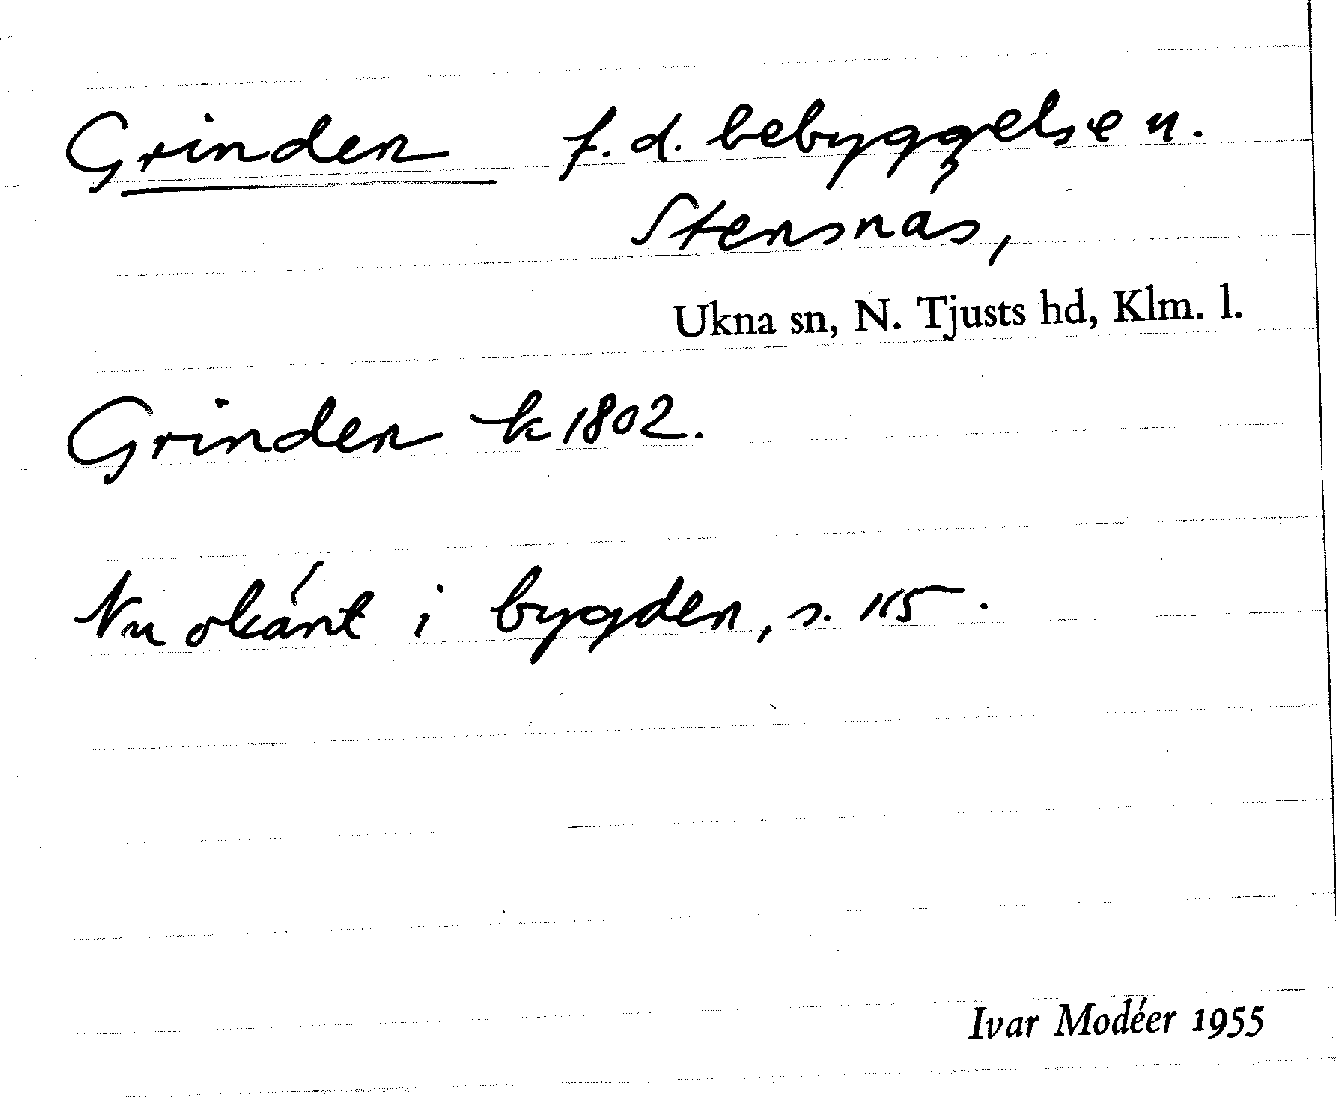 Grinden f.d. bebyggelse u.
Stensnäs,
Ukna sn, N. Tjusts hd, Klm. l.
Grinden k 1802.
Nu okänt i bygden, s. 115.
Ivar Modéer 1955